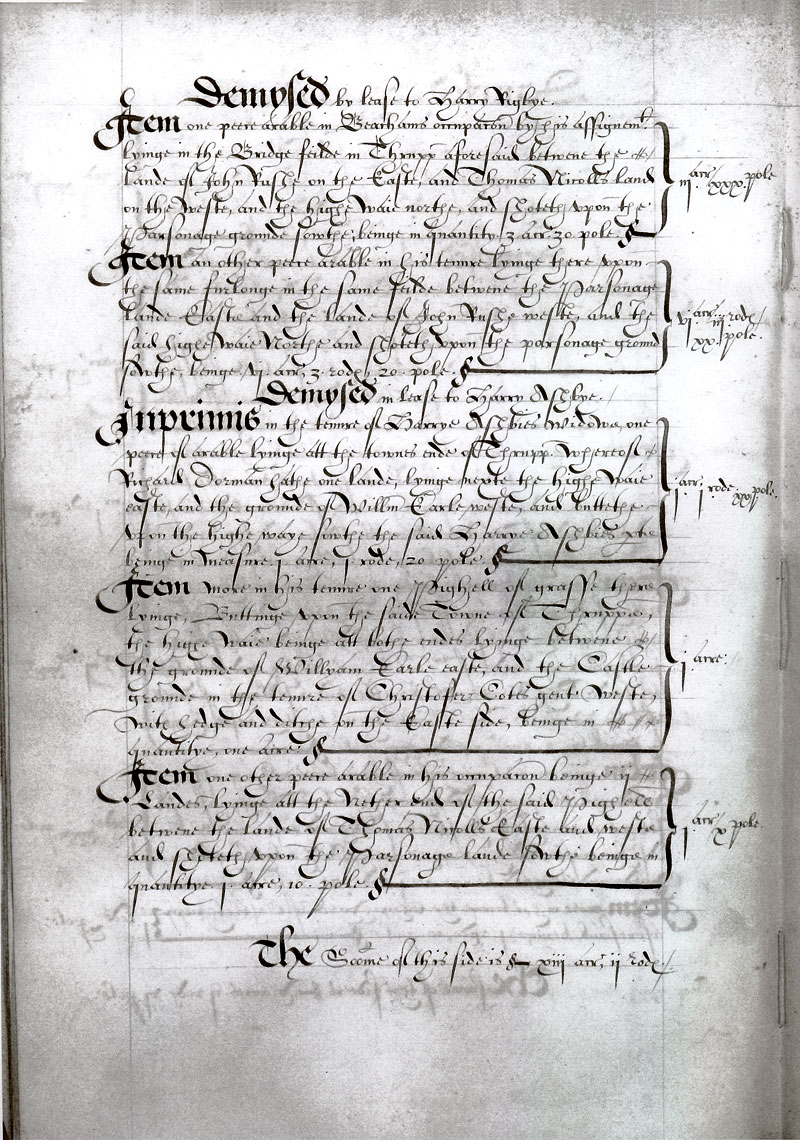 Demysed by lease to Harry Rigbye.
Item one peece arable in Beachams occupacon by his assignemt
lyinge in the Bridge feilde in Thrupp aforesaid betwene the
Lande of John Rushe on the Easte, and Thomas Nicolls land
on the weste, and the highe waie northe, and shoteth vpon the
Parsonage grounde sowthe, beinge in quantity 3 acr, 30 pole.
iij acr xxx pole
Item an other peece arable in his tenure lyinge there vpon
the same furlonge in the same feilde betwene the Parsonage
Lande Easte and the lande of John Rushe weste, and the
said highe waie Northe and shoteth vpon the parsonage ground
sowthe, beinge, vj acr, 3 rodes, 20 pole.
vj acr iij rodes
xx pole.
Demysed in lease to Harry Ashbye.
Inprimis in the tenure of Harrye Ashbies widowe, one
peece of arable lyinge att the townes ende of Thrupp whereof
Richard Dorman hathe one lande, lyinge nexte the highe waie
easte, and the grounde of Willm Earle weste, and butt the
vpon the highe waye sowthe the said Harrye Ashbies
beinge in measure j acre, j rode, 20 pole
j acr j rode xx pole
Item more in his tenure one Pighell of grasse there
lyinge, Buttinge vpon the saide Towne of Thruppe,
the highe waie beinge att bothe endes lyinge betwene
the grounde of Willyam Earle easte, and the Castle
grounde in the tenure of Christofer Cotes gent weste,
with hedge and ditche on the Easte side, beinge in
quantitye, one acre.
j acre.
Item one other peece arable in his occupacon beinge ij
Landes, lyinge att the Nether end of the said Pighell
betwene the lande of Thomas Nicolls Easte and weste
and shoteth vpon the Parsonage lande sowthe beinge in
quantitye j acre, 10 pole.
j acr x pole
The Some of this side is xiij acr, ij rodes